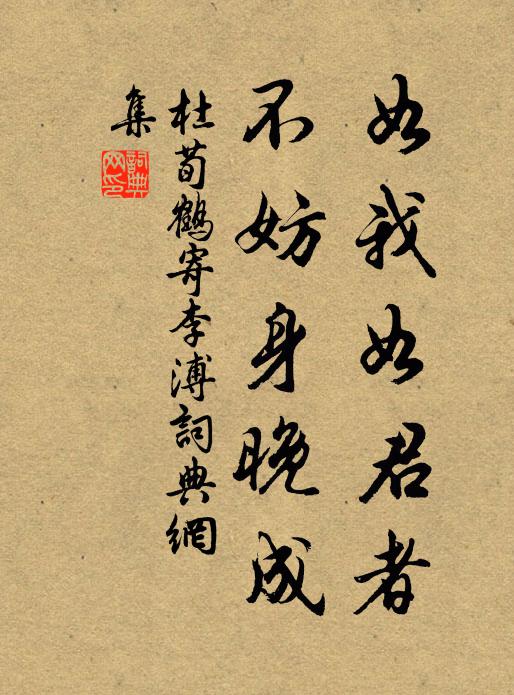 如我如君者
不妨身晚成
杜荀鶴寄李溥詞典網
集
詞典
网印